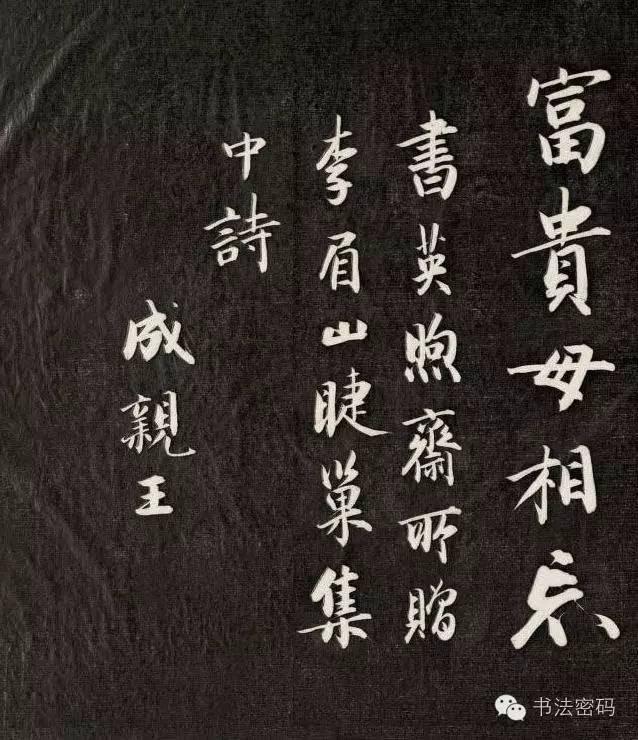 富貴毋相忘
書英煦齋所贈
李眉山睫巢集
中詩
成親王
书法密码